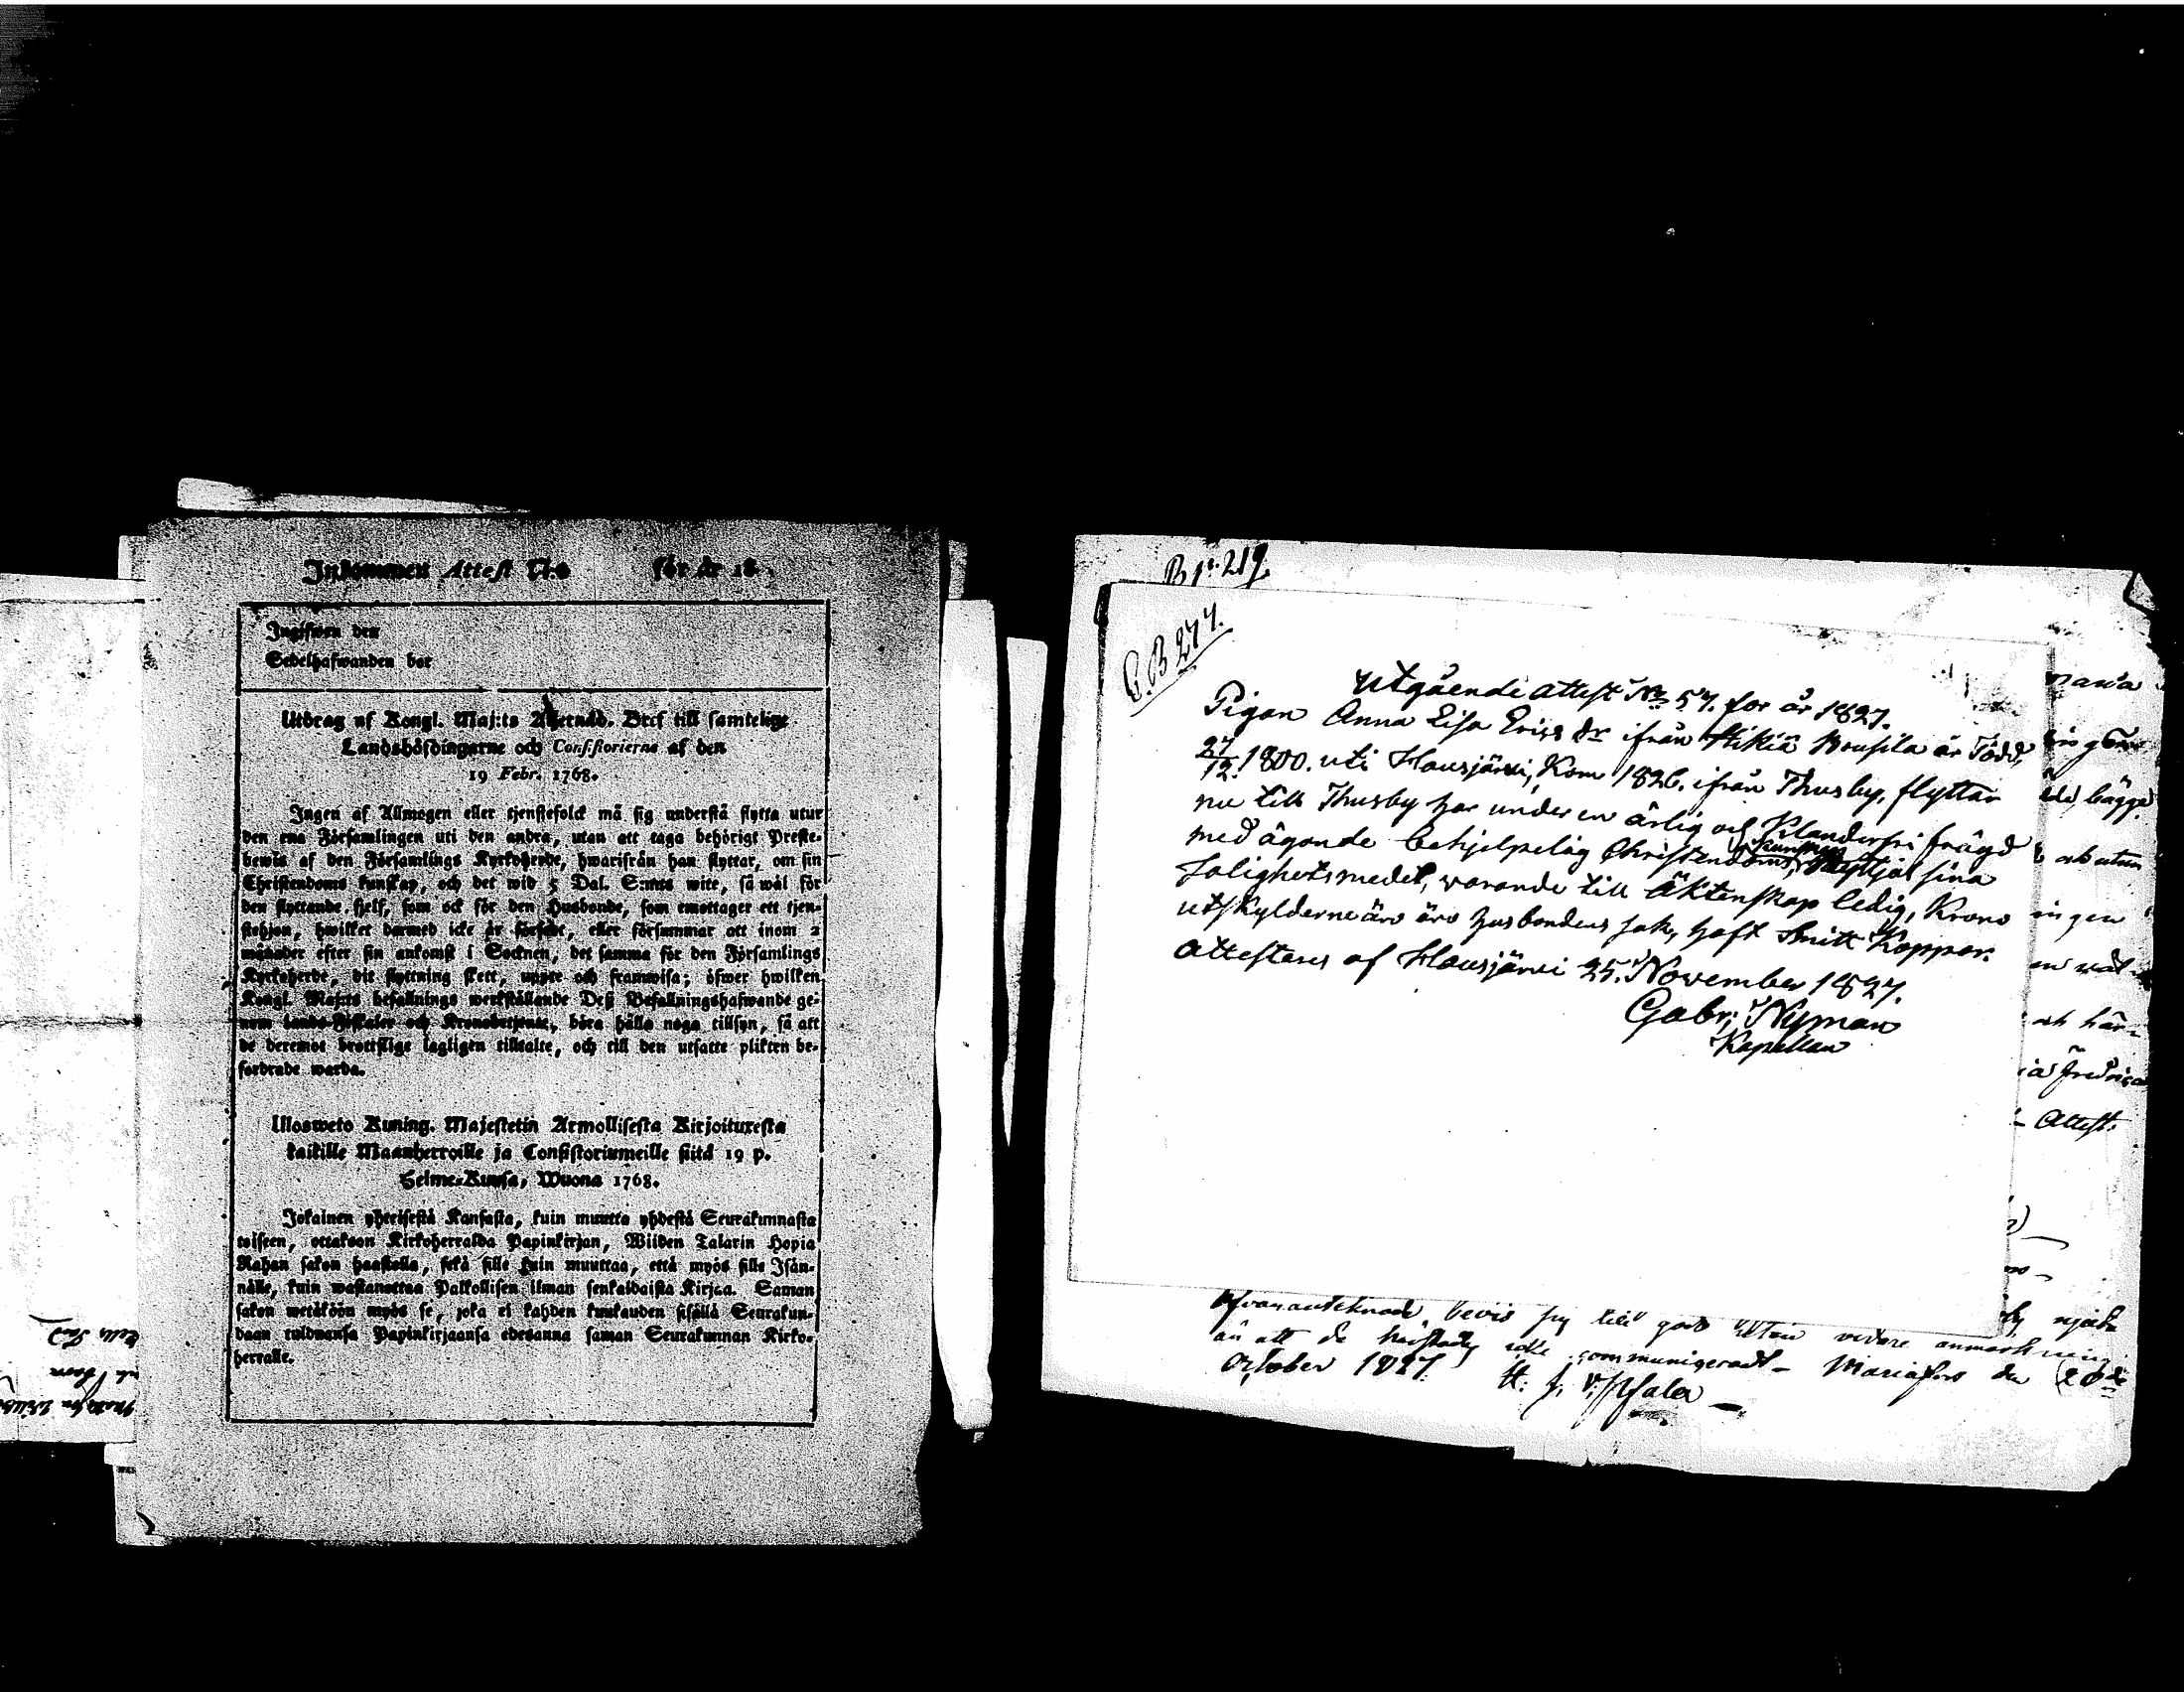 Inkommen Attest N:o för år 18
Ingifwen den
Sedelhafwanden bor
Utdrag af Kongl. Maj:ts Allernåd. Bref till samtelige
Landshöfdingarne och Consistorierna af den
19 Febr. 1768.
Ingen af Allmogen eller tjenstefolck må sig understå flytta utur
den ena Församlingen uti den andra, utan att taga behörigt Preste-
bewis af den Församlings Kyrkoherde, hwarifrån han flyttar, om sin
Christendoms kunskap, och det wid 5 Dal. S:mts wite, så wäl för
den flyttande sjelf, som ock för den Husbonde, som emottager ett tjen-
stehjon, hwilket dermed icke är försedt, eller försummar att inom 2
månader efter sin ankomst i Socknen, det samma för den Församlings
Kyrkoherde, dit flyttning skett, upte och framwisa; öfwer hwilken
Kongl. Maj:ts befallnings werkställande Deß Befallningshafwande ge-
nom lands-Fiskaler och Kronobetjente, böra hålla noga tillsyn, så att
de deremot brottslige lagligen tilltalte, och till den utsatte plikten be-
fordrade warda.
Ulosweto Kuning. Majestetin Armollisesta Kirjoituxesta
kaikille Maanherroille ja Consistoriumeille siitä 19 p.
Helme-Kuusa, Wuona 1768.
Jokainen yhteisestä Kansasta, kuin muutta yhdestä Seurakunnasta
toiseen, ottakoon Kirkoherralda Papinkirjan, Wiiden Talarin Hopia
Rahan sakon haastolla, sekä sille kuin muuttaa, että myös sille Isän-
nälle, kuin wastanottaa Palkollisen ilman senkaldaista Kirjaa. Saman
sakon wetäköön myös se, joka ei kahden kuukauden sisällä Seurakun-
daan tulduansa Papinkirjaansa edesanna saman Seurakunnan Kirko-
herralle.
B p. 219.
G.B 277.
Utgående attest No 57. för år 1827.
Pigan Anna Lisa Ericsdr ifrån Hikiä Brusila är Född
27/12. 1800. uti Hausjärvi, Kom 1826. ifrån Thusby, flyttar
nu till Thusby har under en ärlig och Klanderfri frägd
med ägande behjelpelig Christendoms kunskap, sina
Salighetsmedel, warande till Äktenskap ledig, Krono
utskylderne äro äro husbondens sak, haft Smitt Koppor.
Attesteras af Hausjärvi 25. November 1827.
Gabr: Nyman
Kapellan
Ofvananteknade bevis till godo utan vidare anmärkning
än att de icke communiceradt - Mariæfors den 20de
October 1827.
Attest.